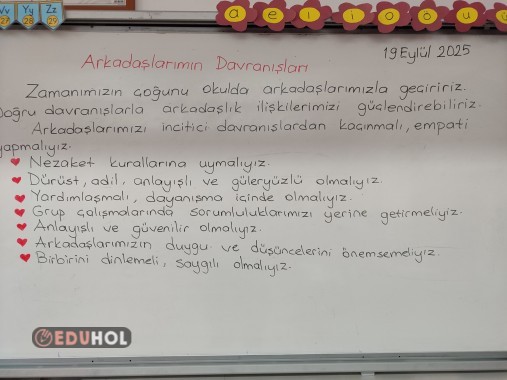 Vv Yy Zz
27 28 29
a e ı i o ö u
19 Eylül 2025
Arkadaşlarımın Davranışları
Zamanımızın çoğunu okulda arkadaşlarımızla geçiririz.
Doğru davranışlarla arkadaşlık ilişkilerimizi güçlendirebiliriz.
Arkadaşlarımızı incitici davranışlardan kaçınmalı, empati
yapmalıyız.
♥ Nezaket kurallarına uymalıyız.
♥ Dürüst, adil, anlayışlı ve güleryüzlü olmalıyız.
♥ Yardımlaşmalı, dayanışma içinde olmalıyız.
♥ Grup çalışmalarında sorumluluklarımızı yerine getirmeliyiz.
♥ Anlayışlı ve güvenilir olmalıyız.
♥ Arkadaşlarımızın duygu ve düşüncelerini önemsemeliyiz.
♥ Birbirini dinlemeli, saygılı olmalıyız.
EDUHOL